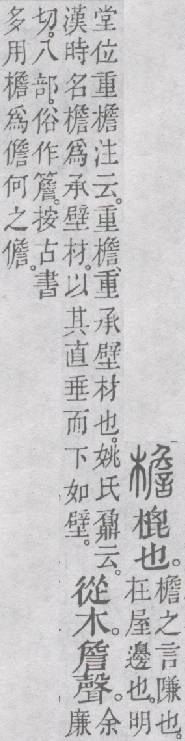 檐㮰也。
檐之言隒也。
在屋邊也。明
堂位重檐注云。重檐、重承壁材也。姚氏鼐云。
漢時名檐爲承壁材。以其直垂而下如壁。
從木。詹聲。
余
廉
切。八部。俗作簷。按古書
多用檐爲儋何之儋。